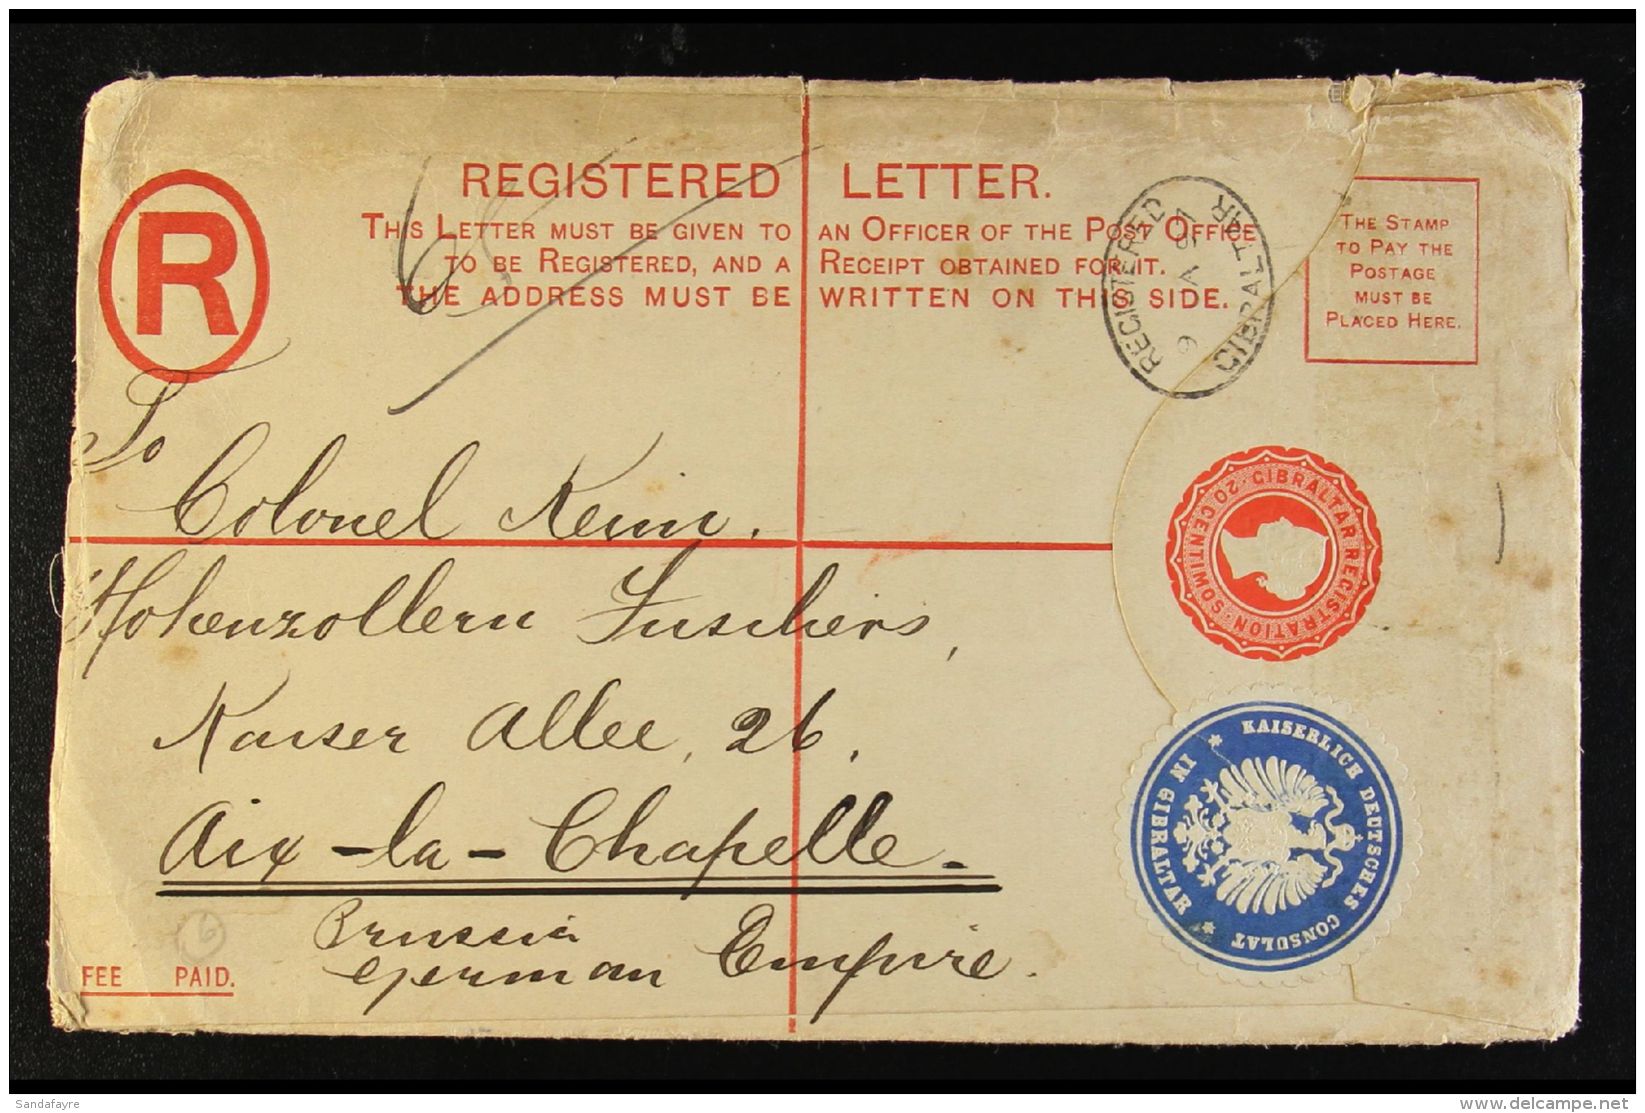 REGISTERED LETTER.
THIS LETTER MUST BE GIVEN TO AN OFFICER OF THE POST OFFICE
TO BE REGISTERED, AND A RECEIPT OBTAINED FOR IT.
THE ADDRESS MUST BE WRITTEN ON THIS SIDE.
R
THE STAMP
TO PAY THE
POSTAGE
MUST BE
PLACED HERE.
REGISTERED
GIBRALTAR
To
Colonel Keim.
Hohenzollern
Kaiser Allee, 26,
Aix-la-Chapelle-
Prussia
German Empire.
GIBRALTAR REGISTRATION · 20 CENTIMOS ·
KAISERLICH DEUTSCHES CONSULAT
IN GIBRALTAR
6
FEE PAID.
Sandafayre
delcampe.net